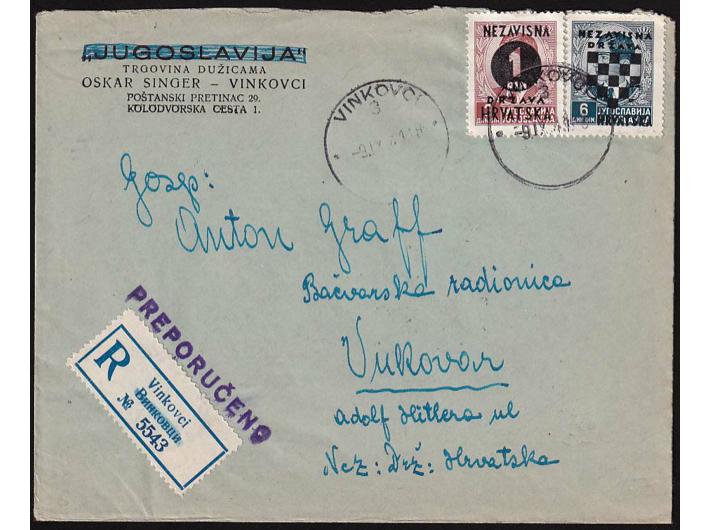 „JUGOSLAVIJA“
TRGOVINA DUŽICAMA
OSKAR SINGER – VINKOVCI
POŠTANSKI PRETINAC 29.
KOLODVORSKA CESTA 1.
NEZAVISNA
1
DRŽAVA
HRVATSKA
NEZAVISNA
DRŽAVA
6
ЈУГОСЛАВИЈА
HRVATSKA
VINKOVCI
3
VINKOVCI
3
Gosp:
Anton Graff
Bačvarska radionica
Vukovar
adolf Hitlera ul
Nez: Drž: Hrvatska
PREPORUČENO
R
Vinkovci
Винковци
№ 5543